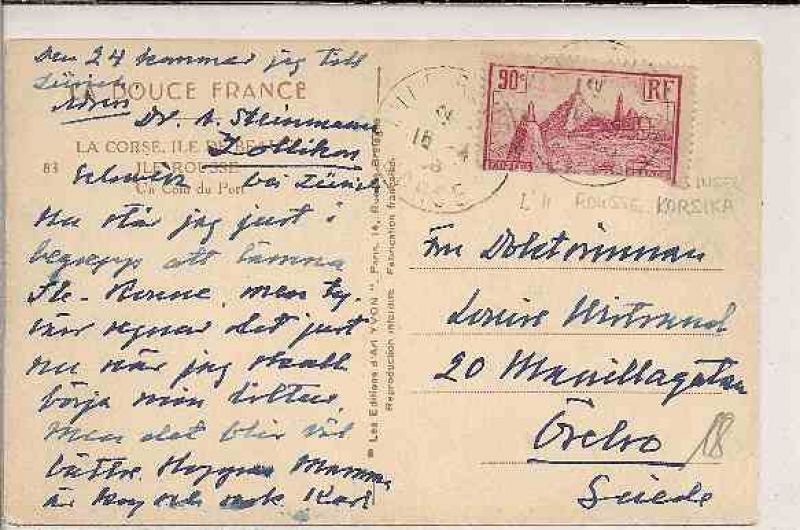 den 24 kommer jag till
Zürich.
LA DOUCE FRANCE
Adress
Dr. A. Steinmann
LA CORSE. ILE DE BEAUTÉ
Zollikon
83
ILE ROUSSE
bei Zürich
Un Coin du Port
Nu står jag just i
begrepp att lämna
Ile-Rousse, men ty-
värr regnar det just
nu när jag skall
börja min
Men det blir väl
bättre. Hoppas Mamma
är kry och rask Karl
★ Les Editions d'Art "YVON", Paris, 15, Rue
Reproduction interdite. Fabrication française
90c
RF
16
L'Il ROUSSE. KORSIKA
Fru Doktorinnan
Louise
20 Manillagatan
Örebro
18
Suède